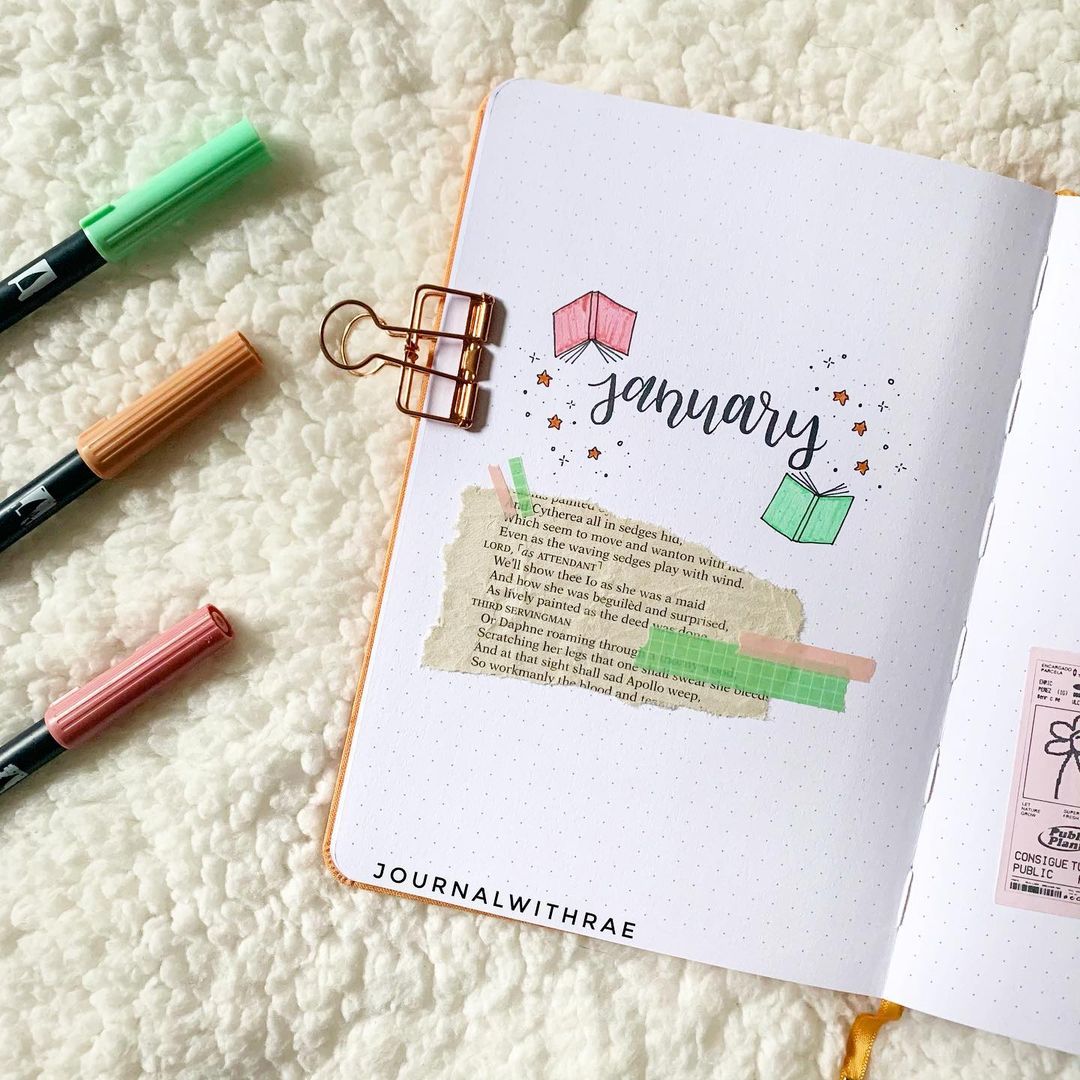 january
painted
Cytherea all in sedges hid,
Which seem to move and wanton with
Even as the waving sedges play with wind.
LORD, ⌜as ATTENDANT⌝
We'll show thee Io as she was a maid
And how she was beguilèd and surprised,
As lively painted as the deed was done.
THIRD SERVINGMAN
Or Daphne roaming through a thorny wood,
Scratching her legs that one shall swear she bleeds
And at that sight shall sad Apollo weep,
So workmanly the blood and
JOURNALWITHRAE
ENCARGADO
PARCELA
ENRIC
PEREZ (IG)
LET
NATURE
GROW
SUPER
FRESH
Publ
Plan
CONSIGUE TU
PUBLIC